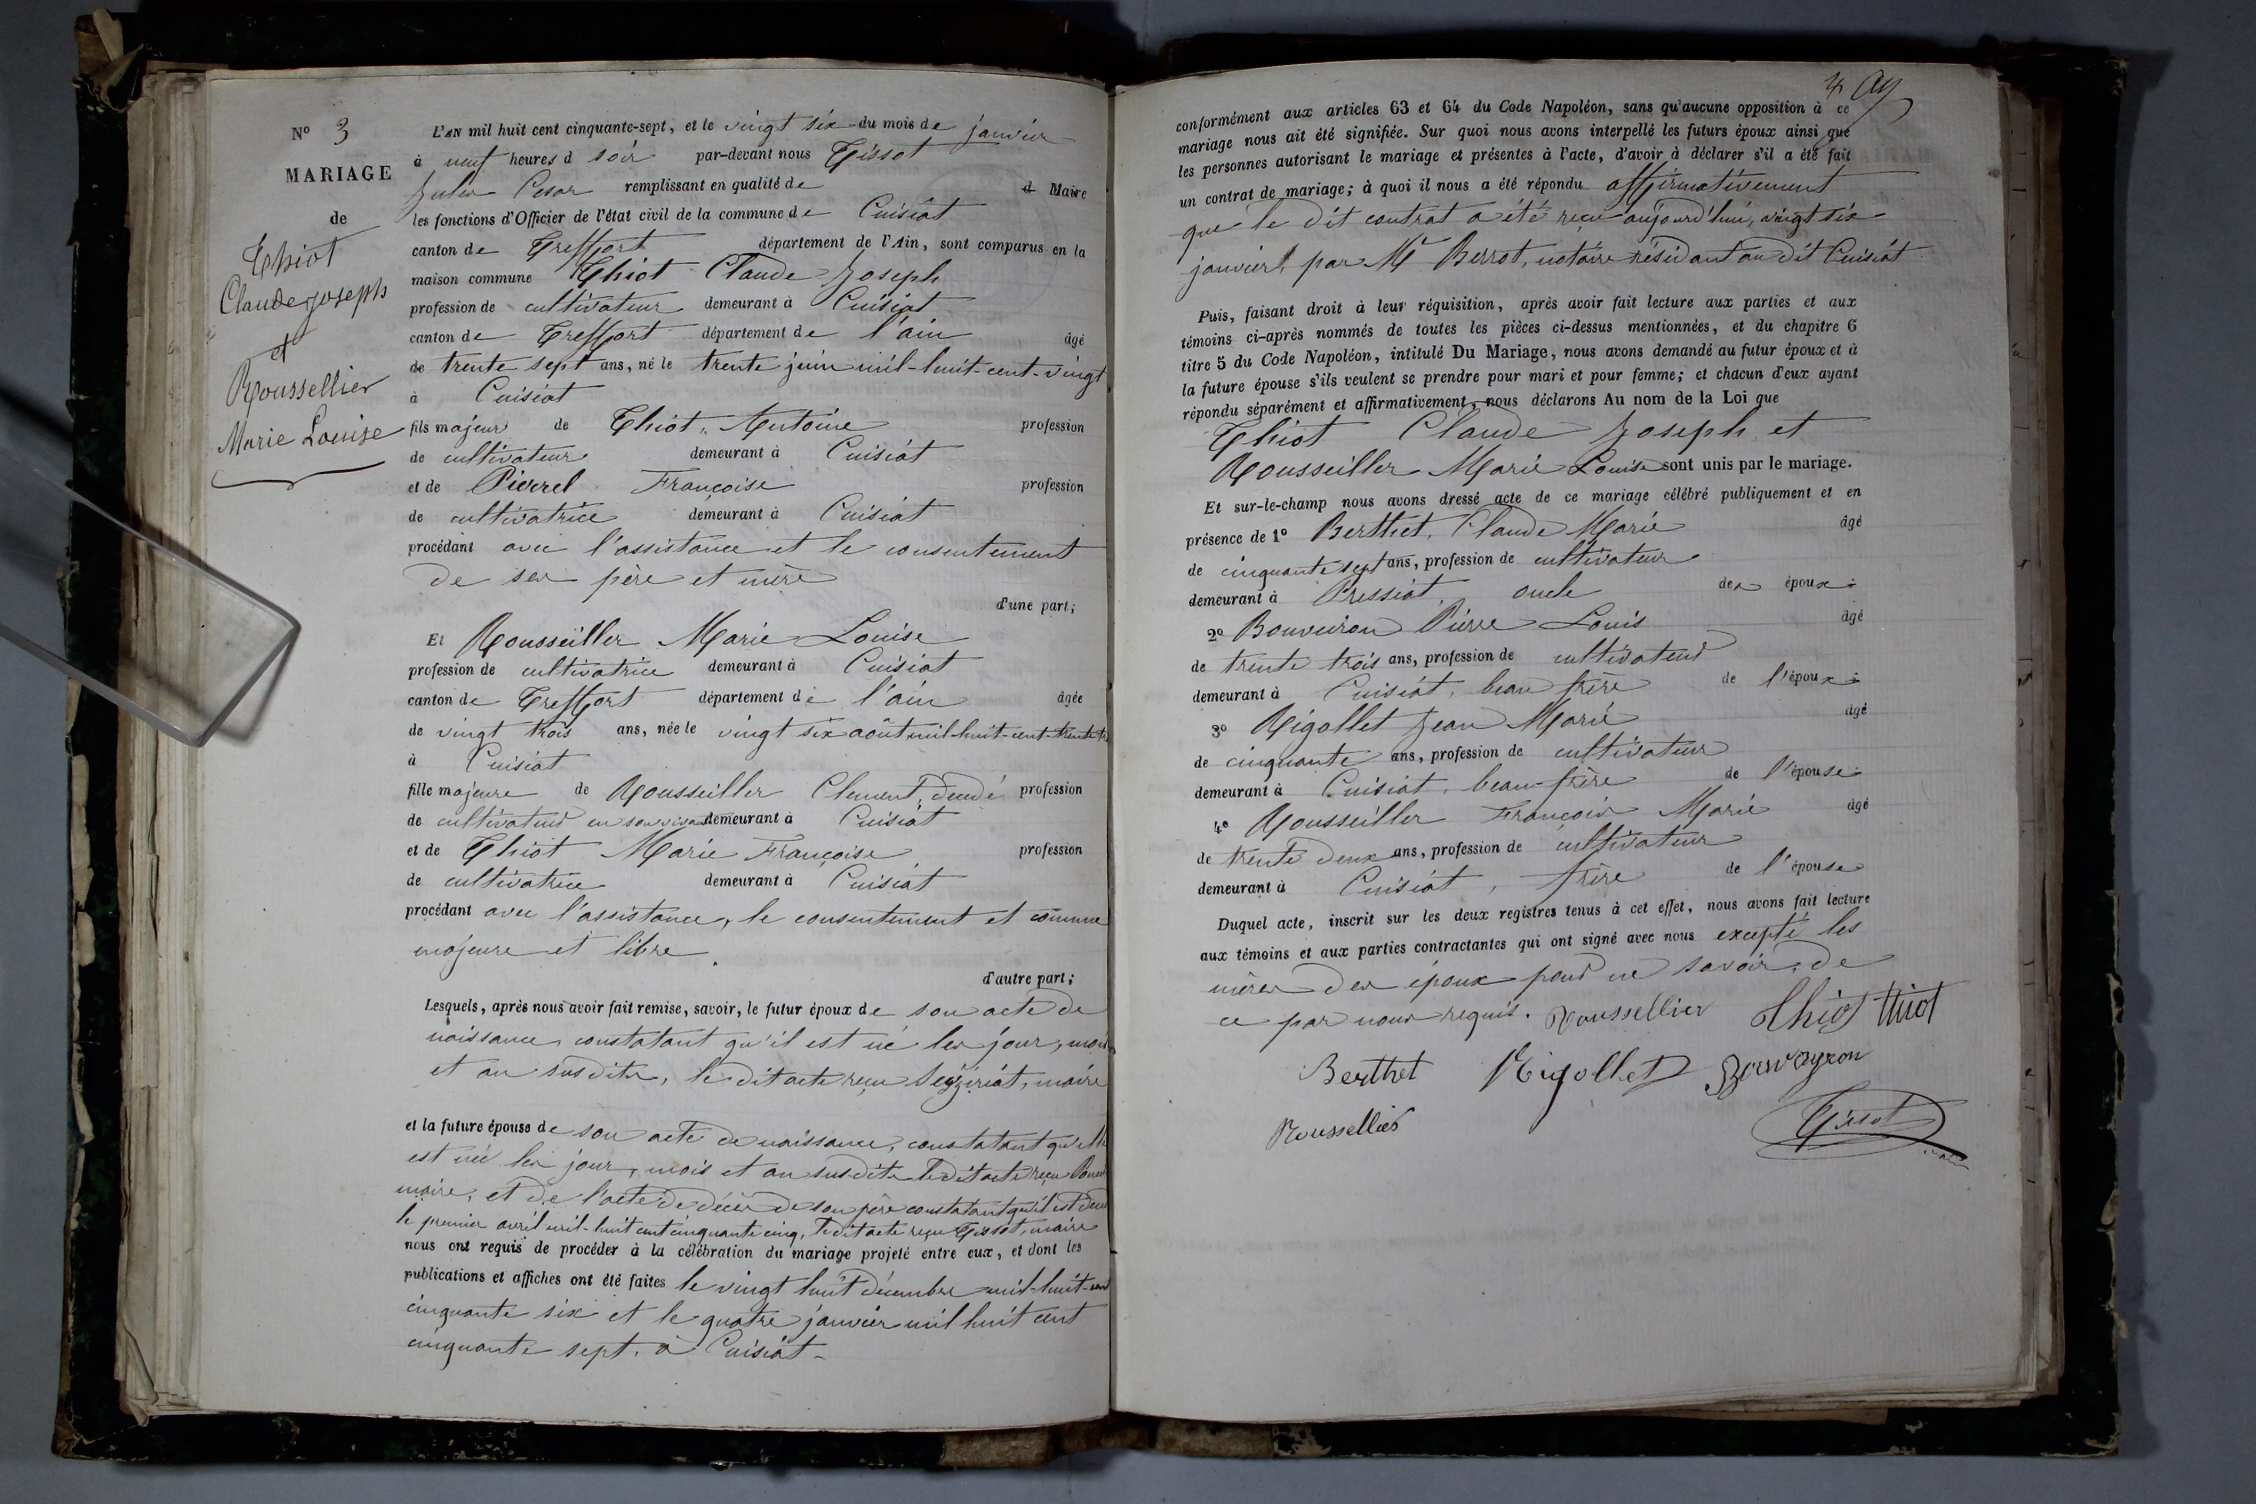 N° 3
MARIAGE
de
Thiot
Claude Joseph
et
Roussellier
Marie Louise
L'AN mil huit cent cinquante-sept, et le vingt six du mois de janvier
à neuf heures d soir par-devant nous Tissot
Jules Cesar remplissant en qualité de Maire
les fonctions d'Officier de l'état civil de la commune de Cuisiat
canton de Treffort département de l'Ain, sont comparus en la
maison commune Thiot Claude Joseph
profession de cultivateur demeurant à Cuisiat
canton de Treffort département de l'ain âgé
de trente sept ans, né le trente juin mil-huit-cent-vingt
à Cuisiat
fils majeur de Thiot, Antoine profession
de cultivateur demeurant à Cuisiat
et de Pierrel Françoise profession
de cultivatrice demeurant à Cuisiat
procédant avec l'assistance et le consentement
de ses père et mère
d'une part;
Et Rousseiller Marie Louise
profession de cultivatrice demeurant à Cuisiat
canton de Treffort département de l'ain âgée
de vingt trois ans, née le vingt six août mil-huit-cent-trente
à Cuisiat
fille majeure de Rousseiller Clement, décédé profession
de cultivateur en son vivant demeurant à Cuisiat
et de Thiot Marie Françoise profession
de cultivatrice demeurant à Cuisiat
procédant avec l'assistance, le consentement et comme
majeure et libre
d'autre part;
Lesquels, après nous avoir fait remise, savoir, le futur époux de son acte de
naissance, constatant qu'il est né les jour, mois
et an susdits, le dit acte reçu maire
et la future épouse de son acte de naissance, constatant qu'elle
est née les jour, mois et an susdits, le dit acte reçu
maire, et de l'acte de décès de son père constatant qu'il est
le premier avril mil-huit cent cinquante cinq, le dit acte reçu Tissot, maire
nous ont requis de procéder à la célébration du mariage projeté entre eux, et dont les
publications et affiches ont été faites le vingt huit décembre mil-huit-cent
cinquante six et le quatre janvier mil huit cent
cinquante sept, à Cuisiat
conformément aux articles 63 et 64 du Code Napoléon, sans qu'aucune opposition à ce
mariage nous ait été signifiée. Sur quoi nous avons interpellé les futurs époux ainsi que
les personnes autorisant le mariage et présentes à l'acte, d'avoir à déclarer s'il a été fait
un contrat de mariage; à quoi il nous a été répondu affirmativement
que le dit contrat a été reçu aujourd'hui, vingt six
janvier, par Mr Berrot, notaire résidant au dit Cuisiat
Puis, faisant droit à leur réquisition, après avoir fait lecture aux parties et aux
témoins ci-après nommés de toutes les pièces ci-dessus mentionnées, et du chapitre 6
titre 5 du Code Napoléon, intitulé Du Mariage, nous avons demandé au futur époux et à
la future épouse s'ils veulent se prendre pour mari et pour femme; et chacun d'eux ayant
répondu séparément et affirmativement, nous déclarons Au nom de la Loi que
Thiot Claude Joseph et
Rousseiller Marie Louise sont unis par le mariage.
Et sur-le-champ nous avons dressé acte de ce mariage célébré publiquement et en
présence de 1° Berthet, Claude Marie âgé
de cinquante sept ans, profession de cultivateur
demeurant à Pressiat, oncle des époux
2° Bouveiron Pierre Louis âgé
de trente trois ans, profession de cultivateur
demeurant à Cuisiat, beau frère de l'époux
3° Rigollet Jean Marie âgé
de cinquante ans, profession de cultivateur
demeurant à Cuisiat, beau-frère de l'épouse
4° Rousseiller François Marie âgé
de trente deux ans, profession de cultivateur
demeurant à Cuisiat, frère de l'épouse
Duquel acte, inscrit sur les deux registres tenus à cet effet, nous avons fait lecture
aux témoins et aux parties contractantes qui ont signé avec nous excepté les
mères des époux pour ne savoir, de
ce par nous requis. Roussellier Thiot Thiot
Berthet Rigollet Bouvayron
Roussellier Tissot